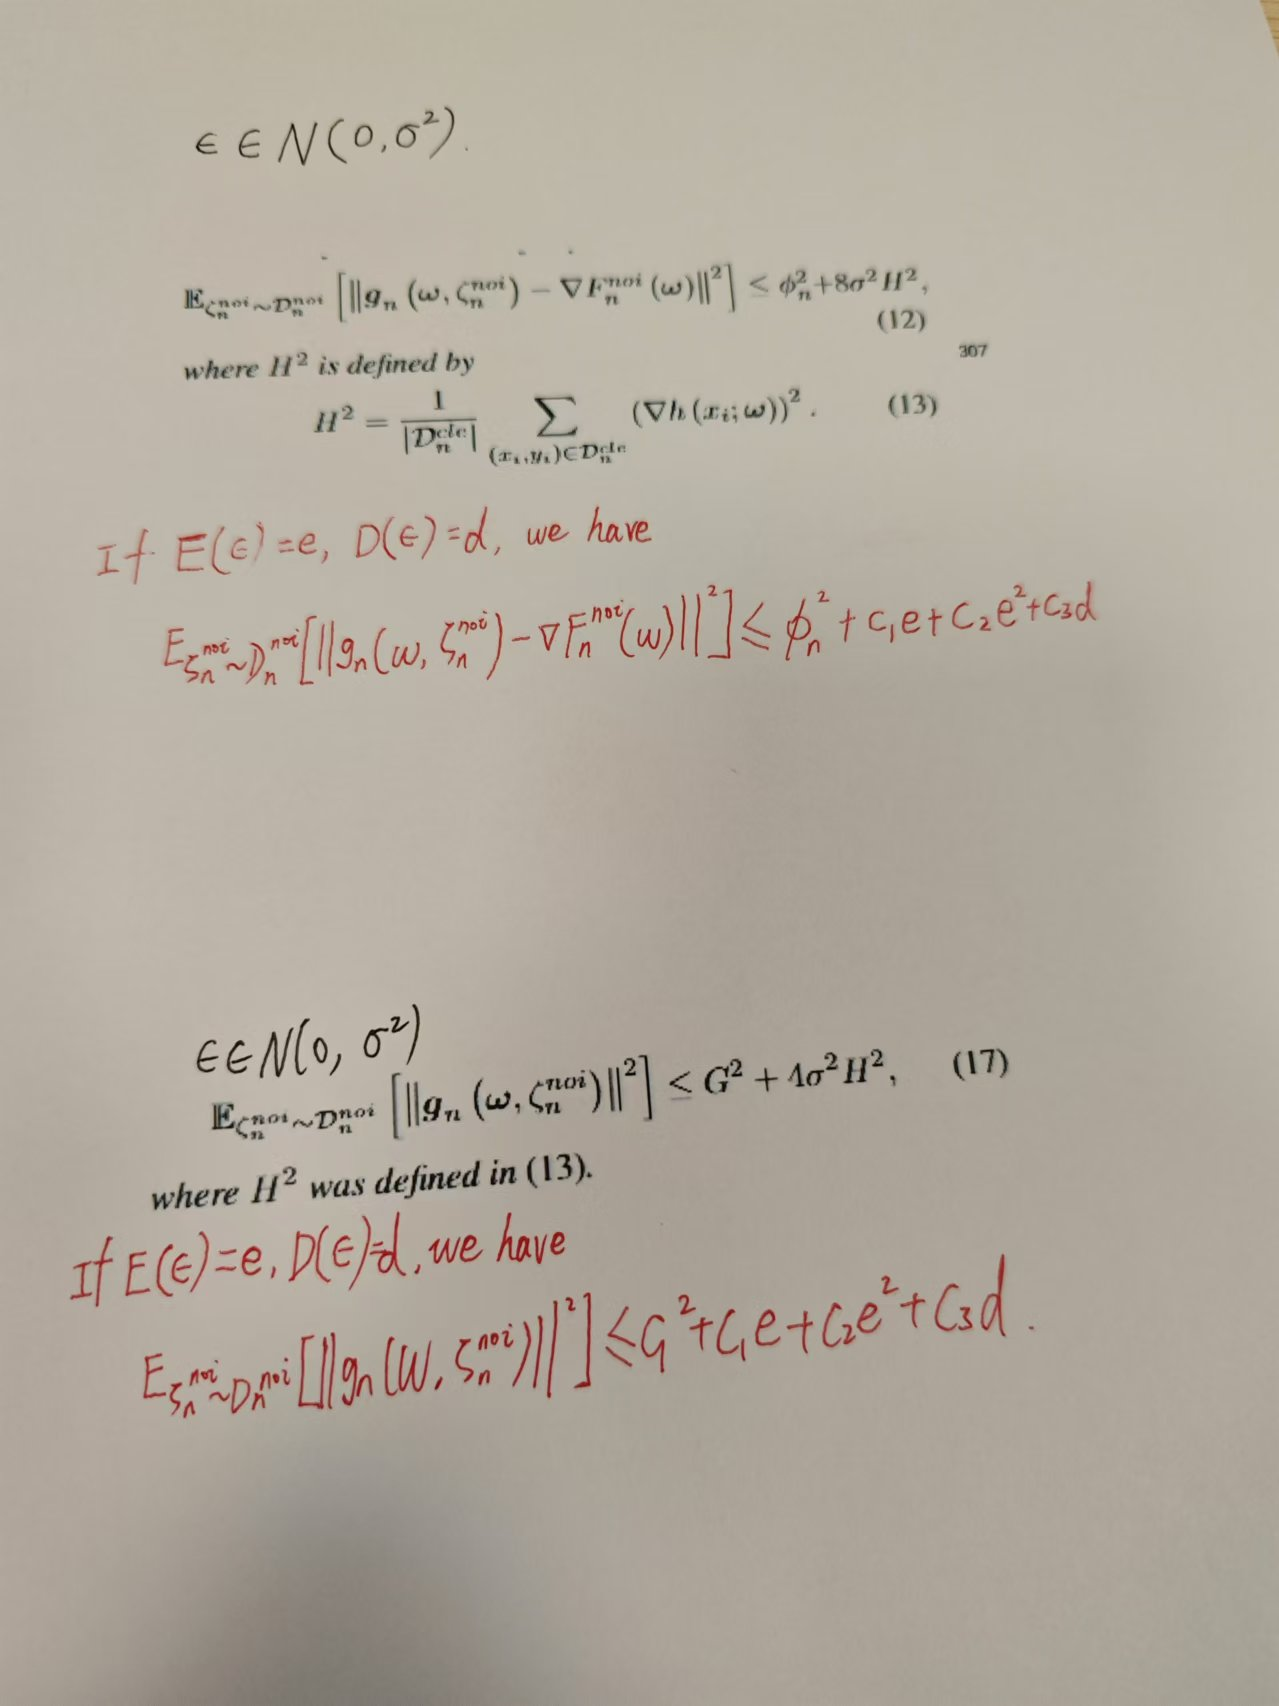 ϵ ∈ N(0,σ²).
𝔼_{ζ_n^{noi}∼𝒟_n^{noi}} [‖g_n (ω, ζ_n^{noi}) − ∇F_n^{noi} (ω)‖²] ≤ ϕ_n²+8σ²H²,
(12)
307
where H² is defined by
H² = \frac{1}{|𝒟_n^{cle}|} ∑_{(x_i,y_i)∈𝒟_n^{cle}} (∇h (x_i; ω))² . (13)
If E(ϵ)=e, D(ϵ)=d, we have
E_{ζ_n^{noi}~D_n^{noi}}[‖g_n(ω, ζ_n^{noi})−∇F_n^{noi}(ω)‖²] ≤ ϕ_n² + c₁e + c₂e²+c₃d
ϵ∈N(0, σ²)
𝔼_{ζ_n^{noi}∼𝒟_n^{noi}} [‖g_n (ω, ζ_n^{noi})‖²] ≤ G² + 4σ²H², (17)
where H² was defined in (13).
If E(ϵ)=e, D(ϵ)=d, we have
E_{ζ_n^{noi}~D_n^{noi}}[‖g_n(W, ζ_n^{noi})‖²] ≤ G²+c₁e+c₂e²+c₃d.